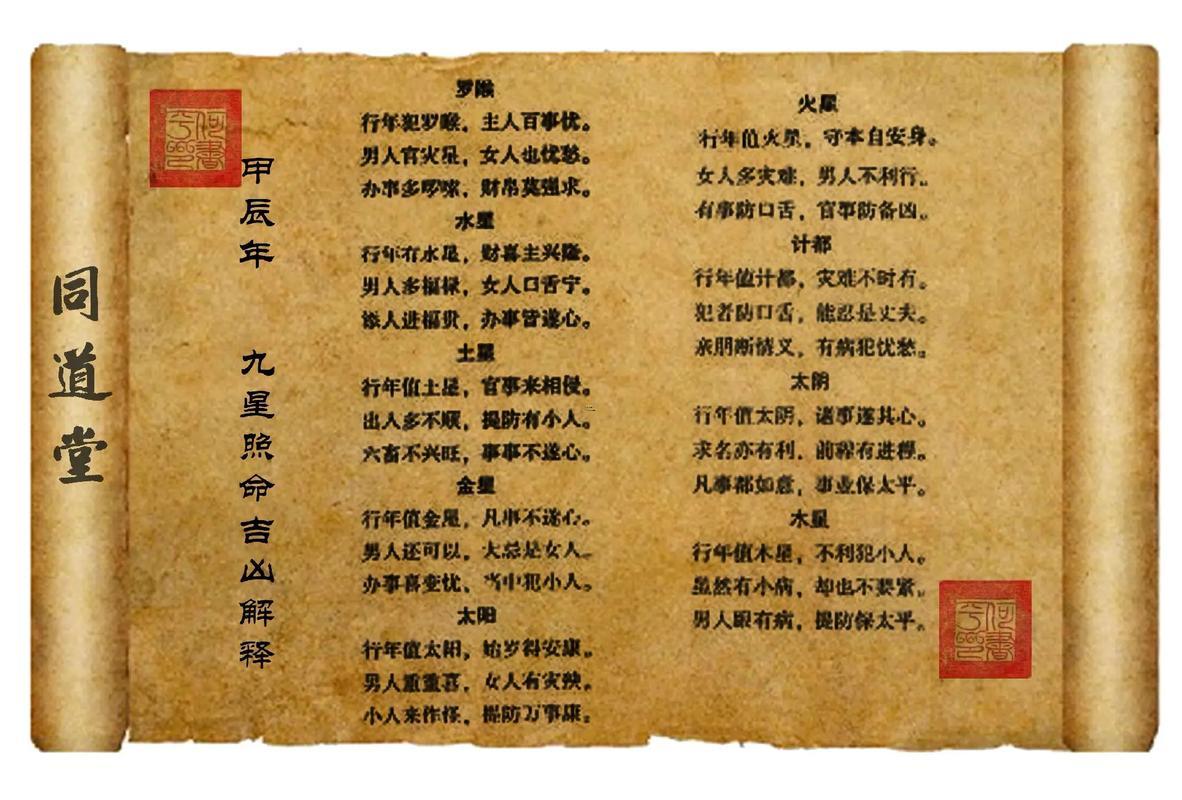 同道堂
甲辰年 九星照命吉凶解释
罗睺
行年犯罗睺，主人百事忧。
男人官灾星，女人也忧愁。
办事多啰嗦，财帛莫强求。
水星
行年有水星，财喜主兴隆。
男人多福禄，女人口舌宁。
添人进福贵，办事皆遂心。
土星
行年值土星，官事来相侵。
出入多不顺，提防有小人。
六畜不兴旺，事事不遂心。
金星
行年值金星，凡事不遂心。
男人还可以，大忌是女人。
办事喜变忧，当中犯小人。
太阳
行年值太阳，始岁得安康。
男人重重喜，女人有灾殃。
小人来作怪，提防万事康。
火星
行年值火星，守本自安身。
女人多灾难，男人不利行。
有事防口舌，官事防备凶。
计都
行年值计都，灾难不时有。
犯者防口舌，能忍是丈夫。
亲朋断情义，有病犯忧愁。
太阴
行年值太阴，诸事遂其心。
求名亦有利，前程有进程。
凡事都如意，事业保太平。
木星
行年值木星，不利犯小人。
虽然有小病，却也不要紧。
男人眼有病，提防保太平。